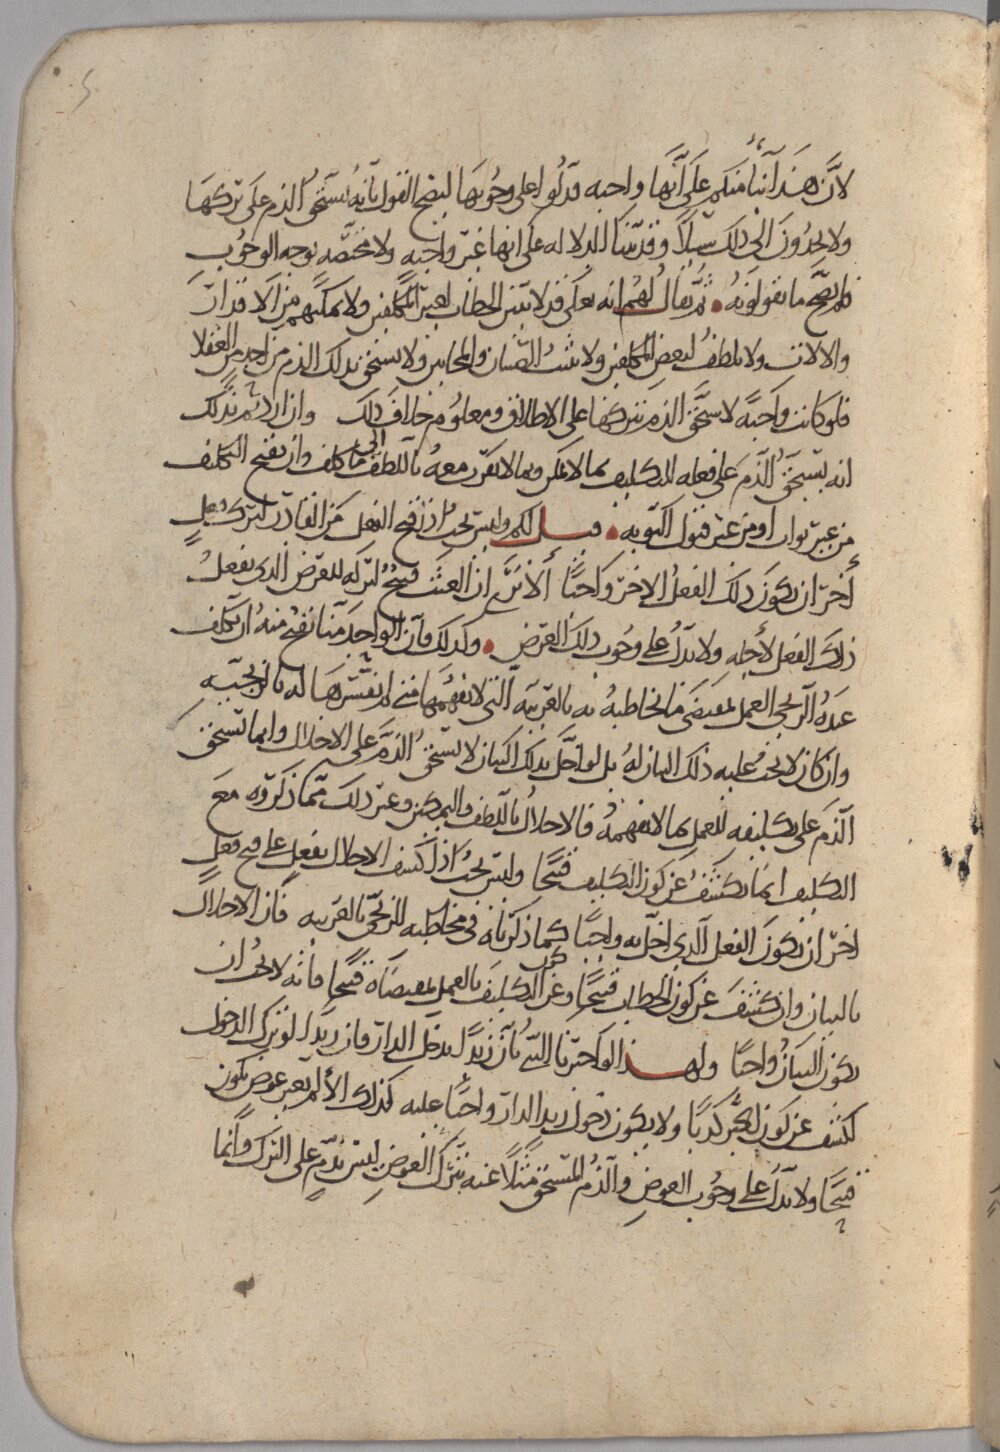 لأن هذا بناء منكم على أنها واجبه فدلوا على وجوبها ليصح القول بأنه يستحق الذم على تركها
ولا يجدون الى ذلك سبيلا وقد بينا الدلاله على انها غير واجبه ولا مختصه بوجه الوجوب
فلم يصح ما تقولونه ثم يقال لهم انه تعلى قد لا يبين الخطاب لغير المكلفين ولا يمكنهم من الاقدار
والالات ولا يلطف لبعض المكلفين ولا يثيب الصبيان والمجانين ولا يستحق بذلك الذم من احد من العقلا
فلو كانت واجبة لاستحق الذم بتركها على الاطلاق ومعلوم خلاف ذلك وان اردتم بذلك
انه يستحق الذم على فعله للتكليف بما لا يمكن وبما لا يقرن معه باللطف الى ما كلف وان يقبح التكليف
من غير ثواب او من غير قبول التوبه قيل لكم وليس يجب اذا قبح الفعل من القادر لتركه فعل
أخر ان يكون ذلك الفعل الاخر واجبا ألا ترى ان العبث يقبح لتركه للغرض الذي يفعل
ذلك الفعل لأجله ولا يدل على وجوب ذلك الغرض وكذلك فان الواحد منا يقبح منه ان يكلف
عبده الزنجي العمل بمقتضى ما يخاطبه به بالعربيه التي لا يفهمها متى لم يفسرها له بالزنجيه
وان كان لا يجب عليه ذلك البيان له بل لو اخل بذلك البيان لا يستحق الذم على الاخلال وانما يستحق
الذم على تكليفه للعمل بما لا يفهمه فالاخلال باللطف والتمكين وغير ذلك مما ذكروه مع
التكليف انما يكشف عن كون التكليف قبيحا وليس يجب اذا كشف الاخلال بفعل على قبح فعل
اخر ان يكون الفعل الذي اخل به واجبا كما ذكرناه في مخاطبه الزنجي بالعربيه فان الاخلال
بالبيان وان كشف عن كون الخطاب قبيحا وعن كون التكليف بالعمل بمقتضاه قبيحا فانه لا يجب ان
يكون البيان واجبا ولهذا لو اخبر نا النبي بأن زيدا يدخل الدار فان زيدا لو ترك الدخول
لكشف عن كون الخبر كذبا ولا يكون دخول زيد الدار واجبا عليه كذلك الألم بغير عوض يكون
قبيحا ولا يدل على وجوب العوض والذم المستحق مثلا عنه بترك العوض ليس بذم على الترك وانما